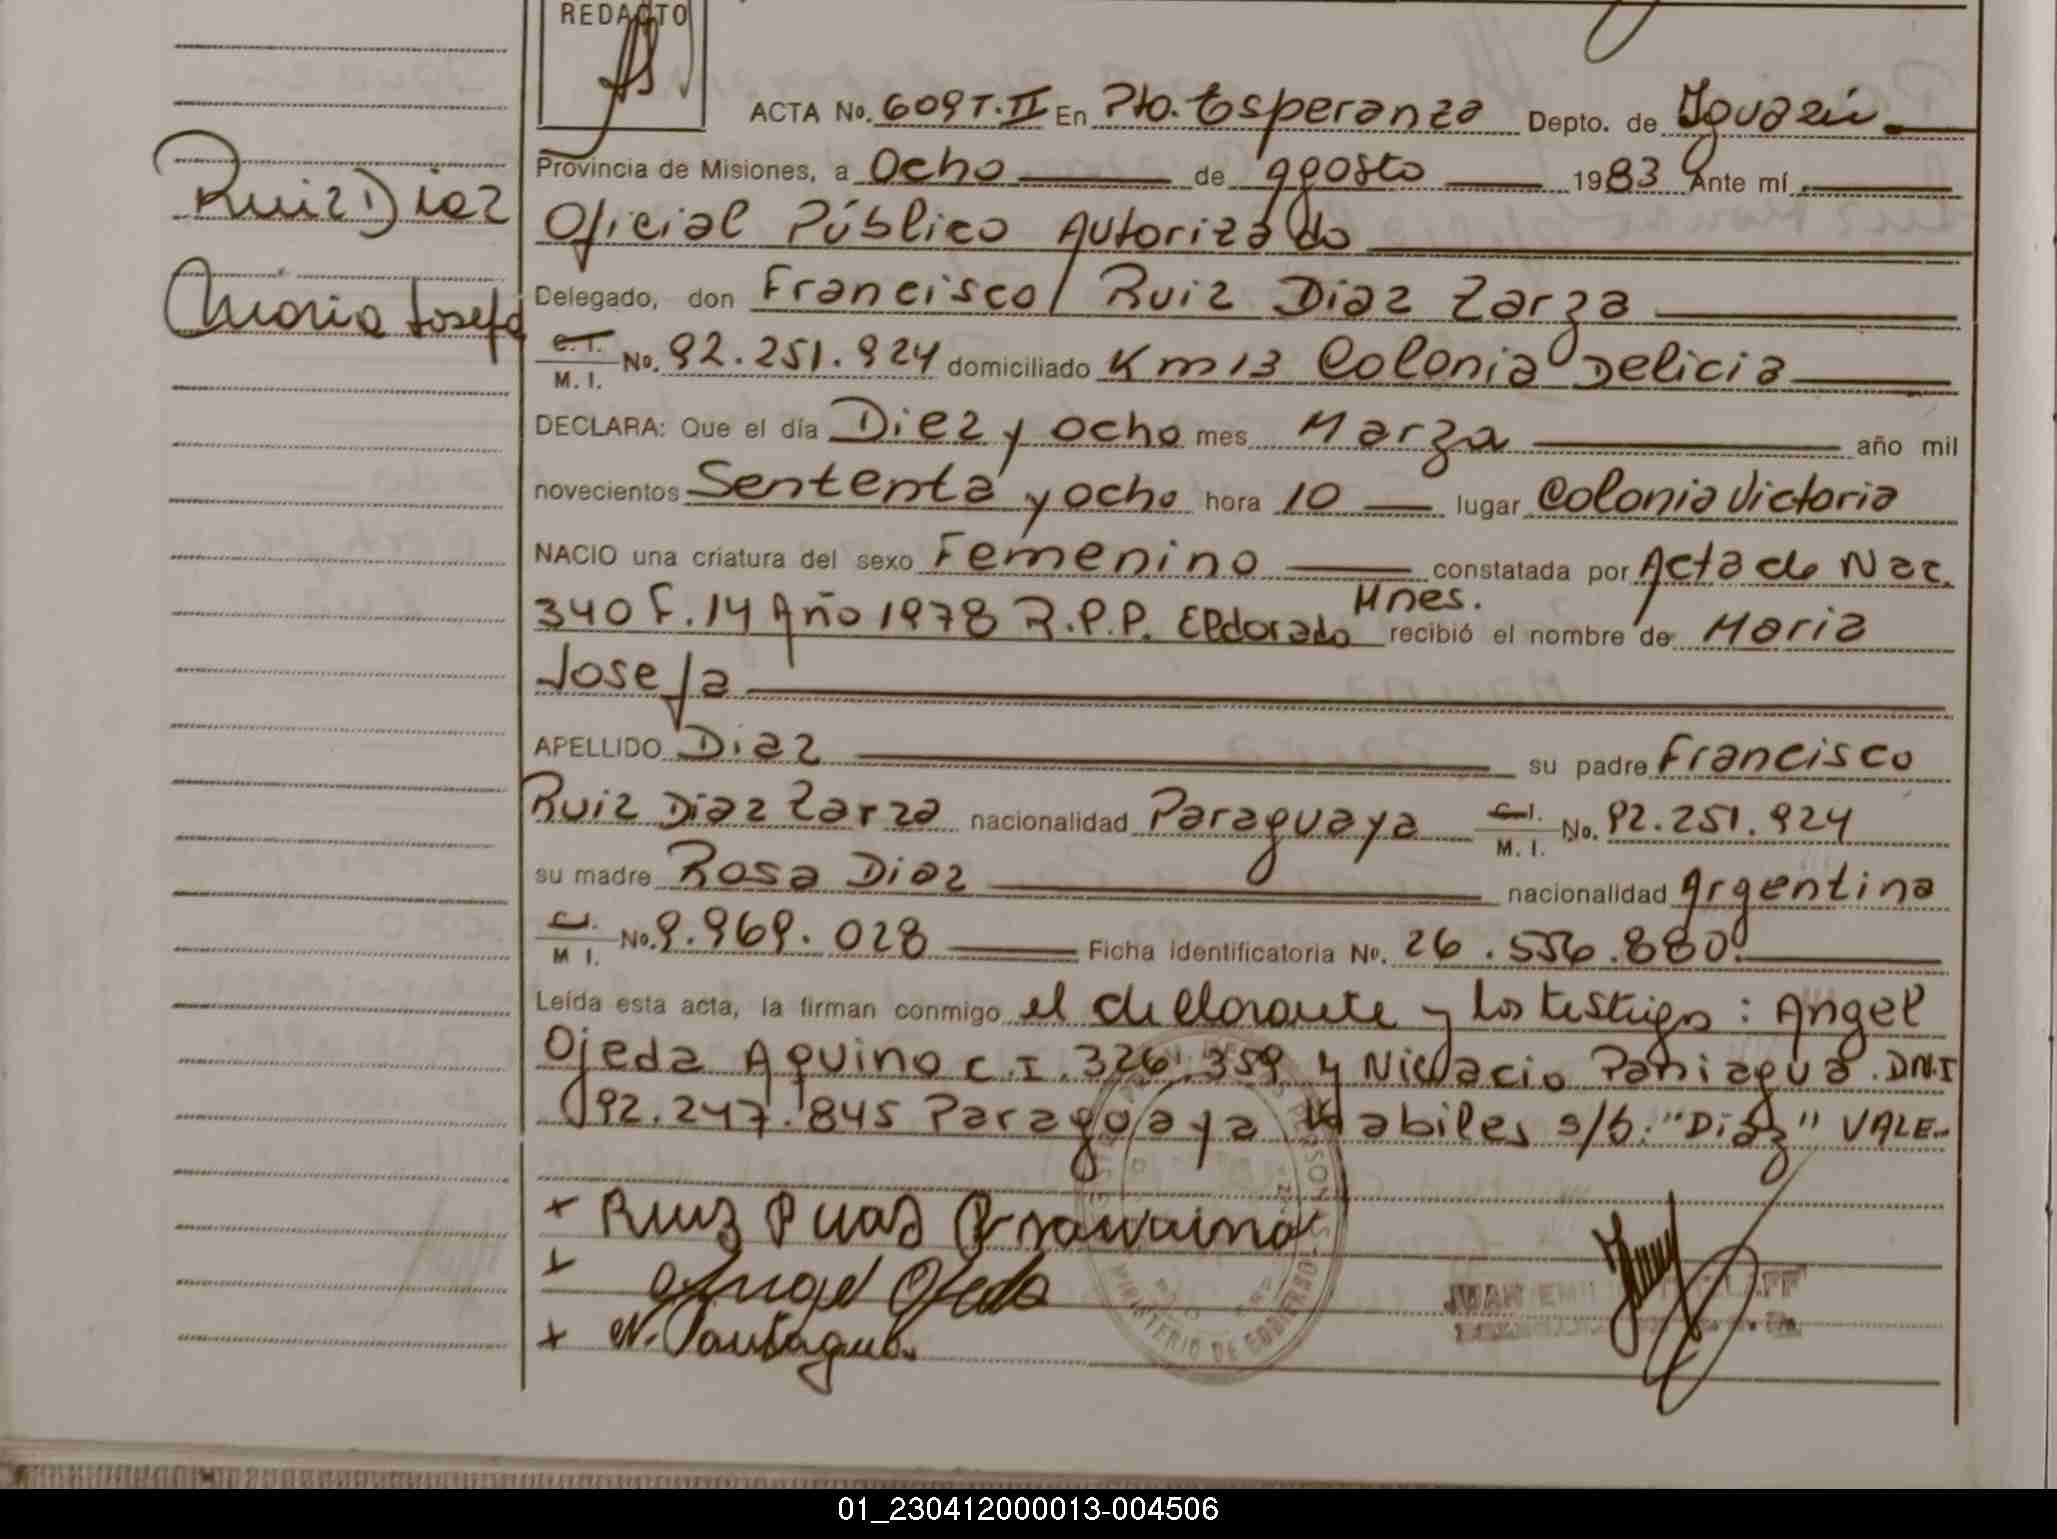 REDACTO
ACTA No. 609 T. II En Pto. Esperanza Depto. de Iguazú
Provincia de Misiones, a Ocho de agosto 1983 Ante mí
Oficial Público Autorizado
Ruiz Diaz
Delegado, don Francisco Ruiz Diaz Zarza
Maria Josefa
C.I. M. I. No. 92.251.924 domiciliado Km 13 Colonia Delicia
DECLARA: Que el día Diez y ocho mes Marzo año mil
novecientos Sententa y ocho hora 10 lugar Colonia Victoria
NACIO una criatura del sexo Femenino constatada por Acta de Nac.
340 F. 14 Año 1978 R.P.P. Eldorado Mnes. recibió el nombre de Maria
Josefa
APELLIDO Diaz su padre Francisco
Ruiz Diaz Zarza nacionalidad Paraguaya C.I. M. I. No. 92.251.924
su madre Rosa Diaz nacionalidad Argentina
C.I. M I. No. 9.969.028 Ficha identificatoria No. 26.556.880
Leída esta acta, la firman conmigo el dellorante y los testigos: Angel
Ojeda Aquino C.I. 326.359 y Nicacio Paniagua. DN.I
92.247.845 Paraguaya Habiles s/b. "Diaz" VALE.
+ Ruiz
+ Angel Ojeda
+ N. Paniagua
JUAN
MINISTERIO DE GOBIERNO
01_230412000013-004506